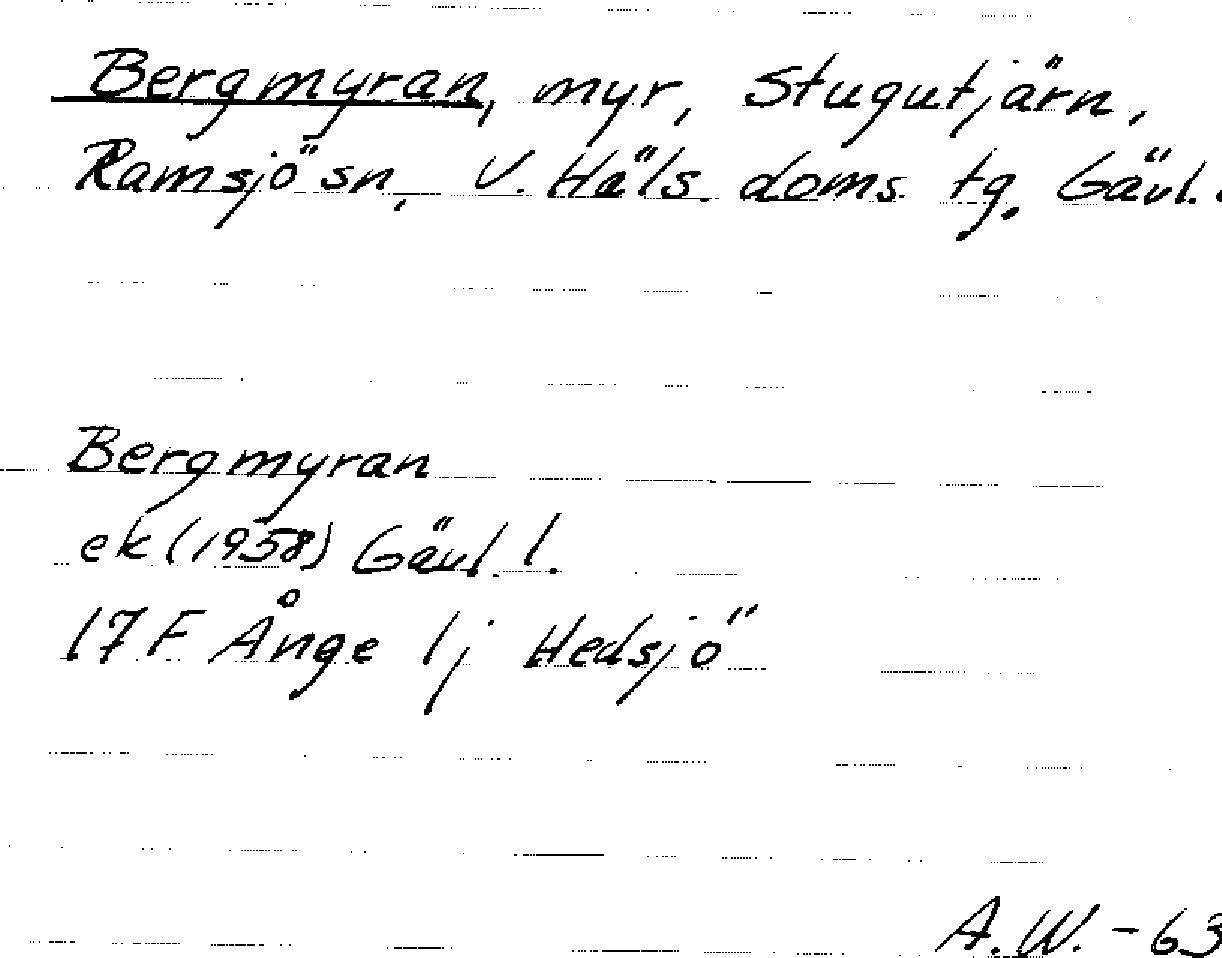 Bergmyran, myr, Stugutjärn,
Ramsjö sn, V. Häls. doms. tg. Gävl.
Bergmyran
ek (1958) Gävl. l.
17 F Ånge 1j Hedsjö
A.W. - 63